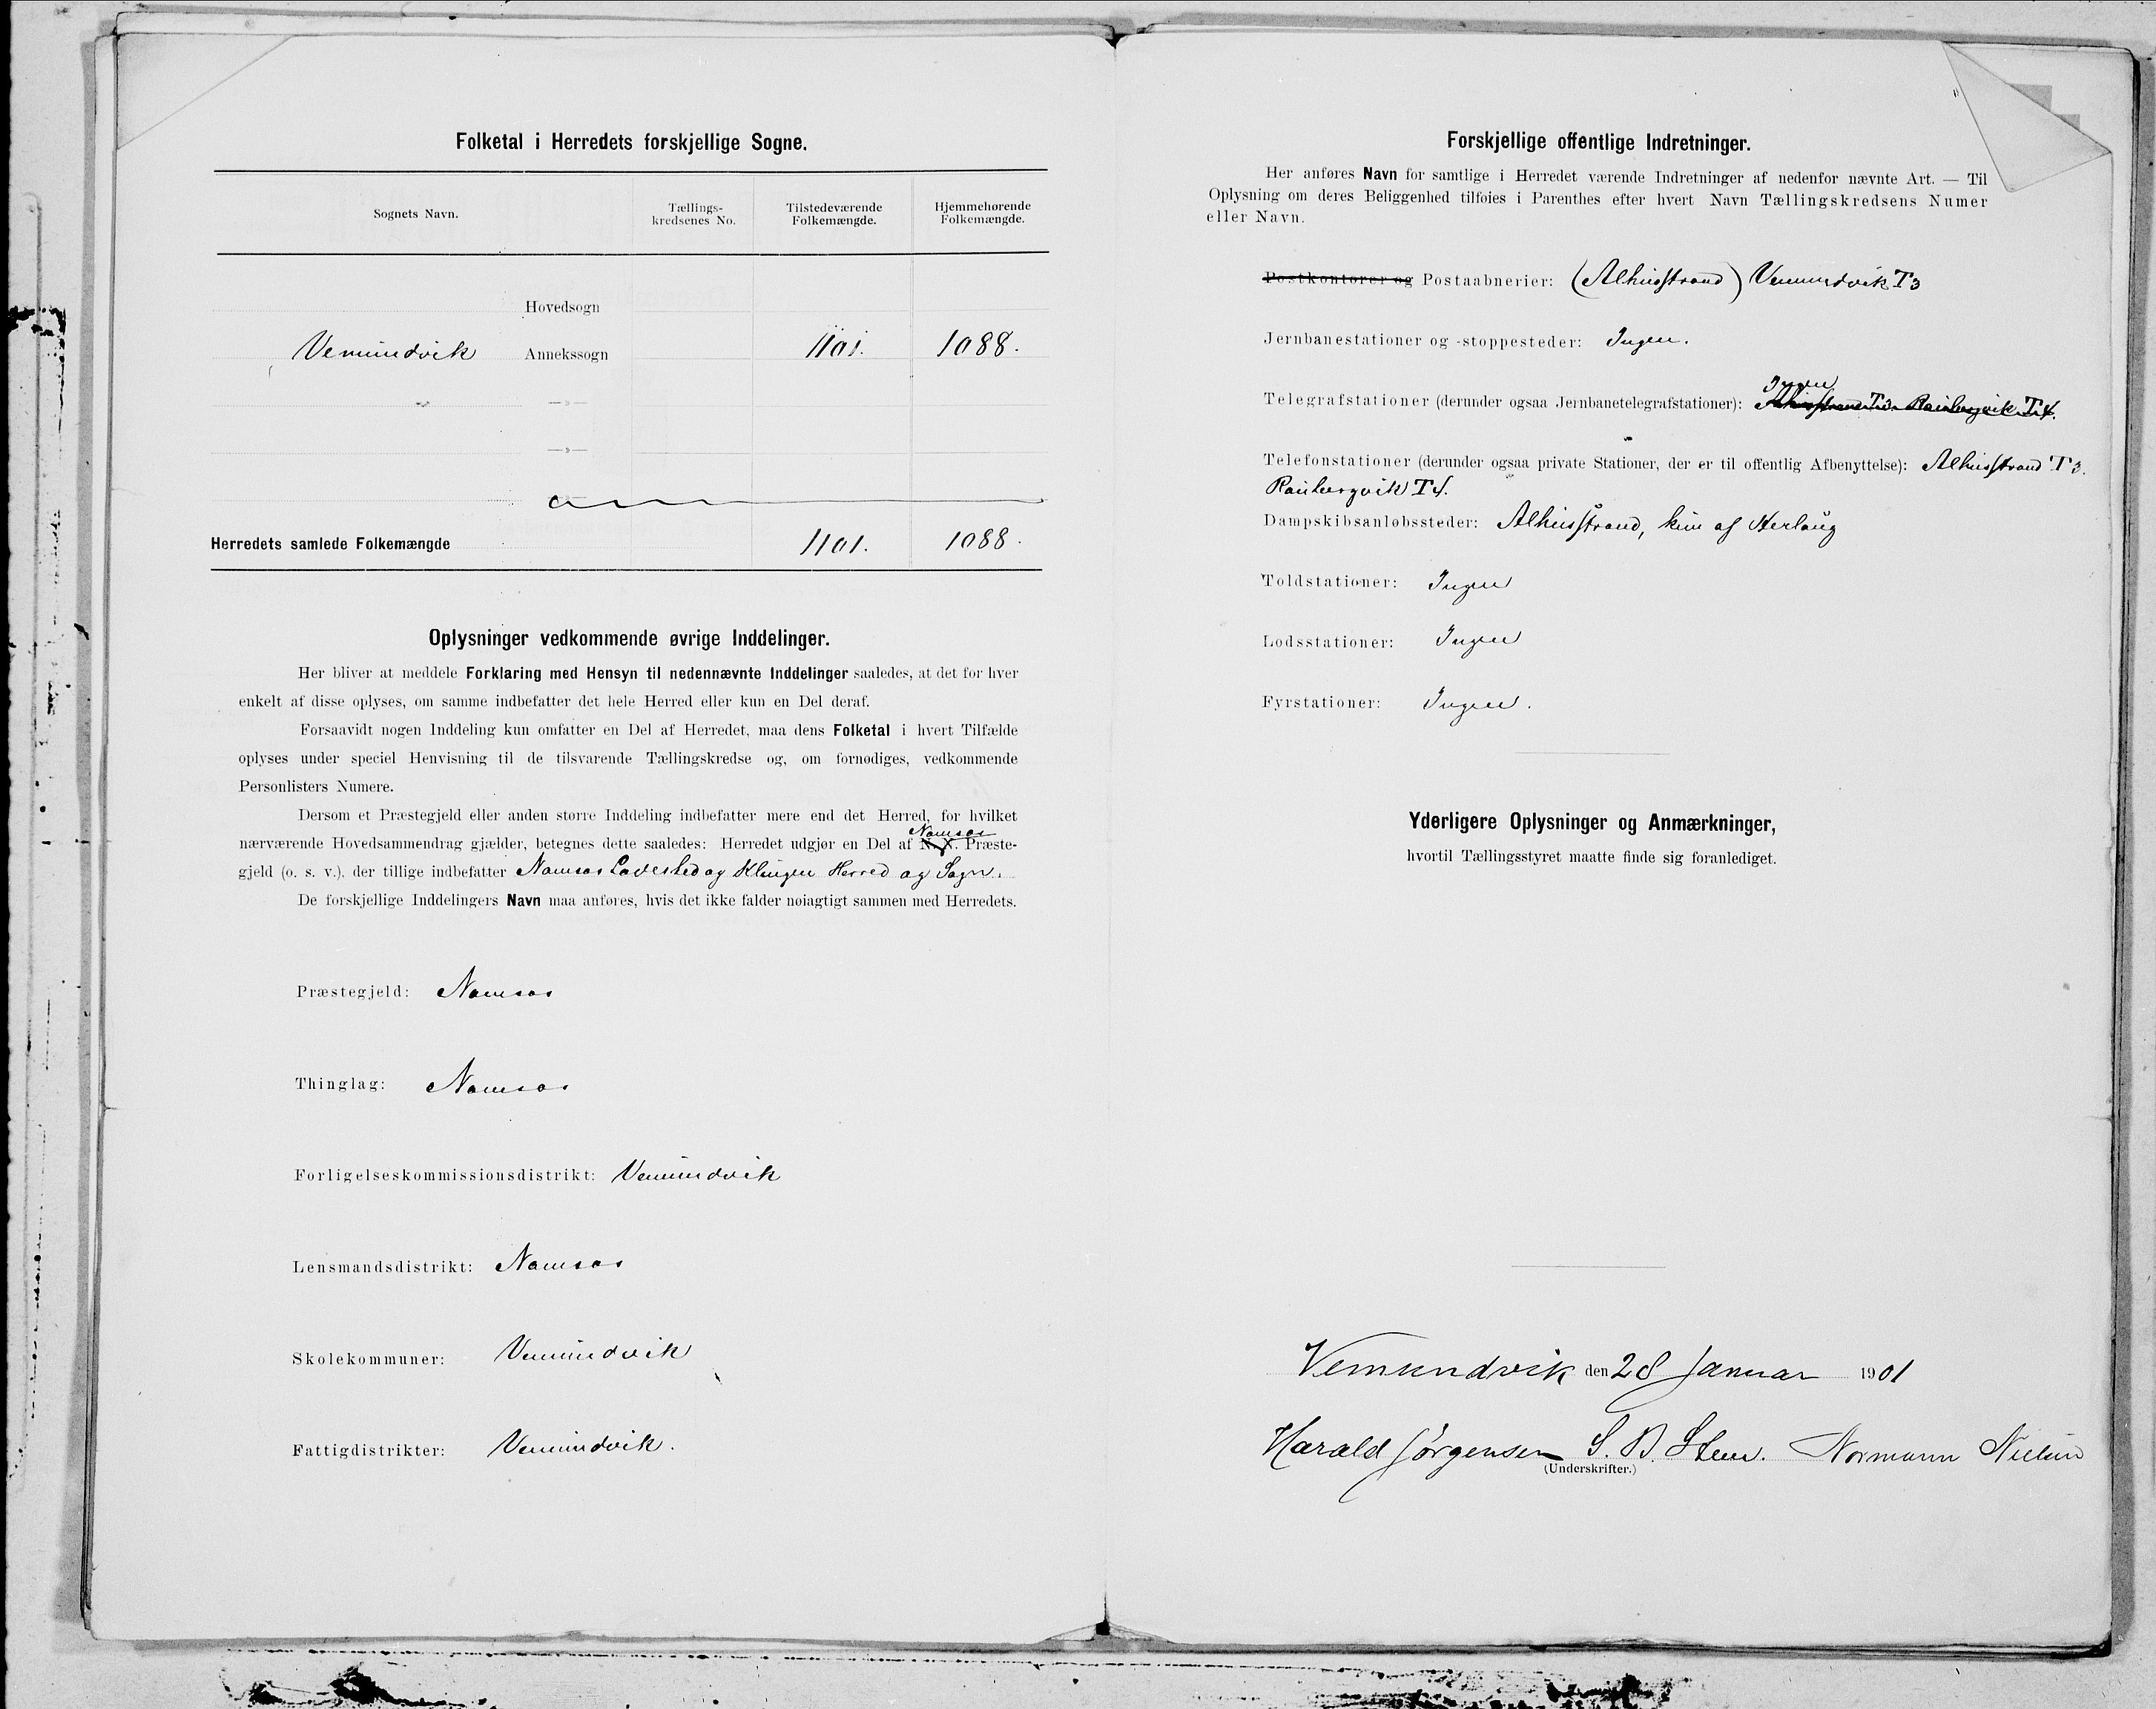 Folketal i Herredets forskjellige Sogne.
Sognets Navn.
Tællings-
kredsenes No.
Tilstedeværende
Folkemængde.
Hjemmehørende
Folkemængde.
Hovedsogn
Vemundvik Annekssogn 1101. 1088.
—»—
—»—
Herredets samlede Folkemængde 1101. 1088.
Oplysninger vedkommende øvrige Inddelinger.
Her bliver at meddele Forklaring med Hensyn til nedennævnte Inddelinger saaledes, at det for hver
enkelt af disse oplyses, om samme indbefatter det hele Herred eller kun en Del deraf.
Forsaavidt nogen Inddeling kun omfatter en Del af Herredet, maa dens Folketal i hvert Tilfælde
oplyses under speciel Henvisning til de tilsvarende Tællingskredse og, om fornødiges, vedkommende
Personlisters Numere.
Dersom et Præstegjeld eller anden større Inddeling indbefatter mere end det Herred, for hvilket
Namsos
nærværende Hovedsammendrag gjælder, betegnes dette saaledes: Herredet udgjør en Del af N. N. Præste-
gjeld (o. s. v.), der tillige indbefatter Namsos Ladested og Klingen Herred og Sogn.
De forskjellige Inddelingers Navn maa anføres, hvis det ikke falder nøiagtigt sammen med Herredets.
Præstegjeld: Namsos
Thinglag: Namsos
Forligelseskommissionsdistrikt: Vemundvik
Lensmandsdistrikt: Namsos
Skolekommuner: Vemundvik
Fattigdistrikter: Vemundvik.
Forskjellige offentlige Indretninger.
Her anføres Navn for samtlige i Herredet værende Indretninger af nedenfor nævnte Art. — Til
Oplysning om deres Beliggenhed tilføies i Parenthes efter hvert Navn Tællingskredsens Numer
eller Navn.
Postkontorer og Postaabnerier: (Alhusstrand) Vemundvik T3
Jernbanestationer og -stoppesteder: Ingen.
Ingen
Telegrafstationer (derunder ogsaa Jernbanetelegrafstationer): Alhusstrand T3 Raubergvik T4.
Telefonstationer (derunder ogsaa private Stationer, der er til offentlig Afbenyttelse): Alhusstrand T3.
Raubergvik T4.
Dampskibsanløbssteder: Alhusstrand, kun af Herlaug
Toldstationer: Ingen
Lodsstationer: Ingen
Fyrstationer: Ingen.
Yderligere Oplysninger og Anmærkninger,
hvortil Tællingsstyret maatte finde sig foranlediget.
Vemundvik den 28 Januar 1901
Harald Jørgensen S. B. Sten. Normann Nielsen
(Underskrifter.)